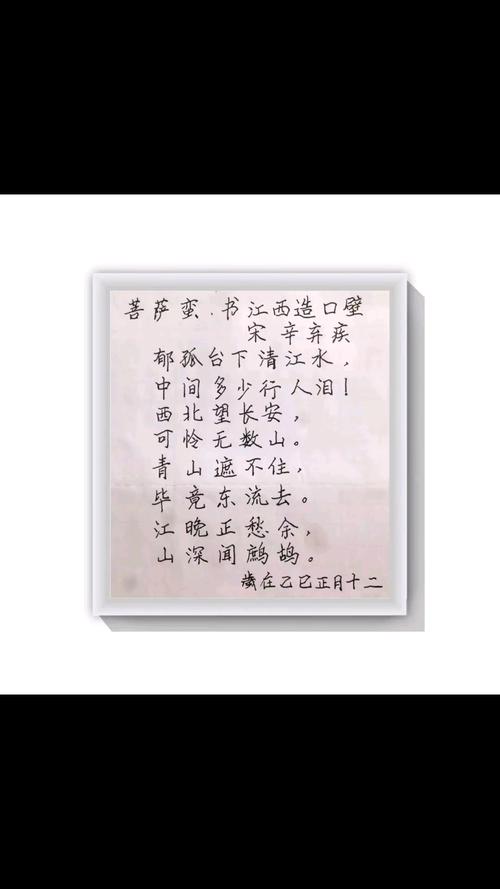 菩萨蛮.书江西造口壁
宋 辛弃疾
郁孤台下清江水，
中间多少行人泪！
西北望长安，
可怜无数山。
青山遮不住，
毕竟东流去。
江晚正愁余，
山深闻鹧鸪。
歲在乙巳正月十二